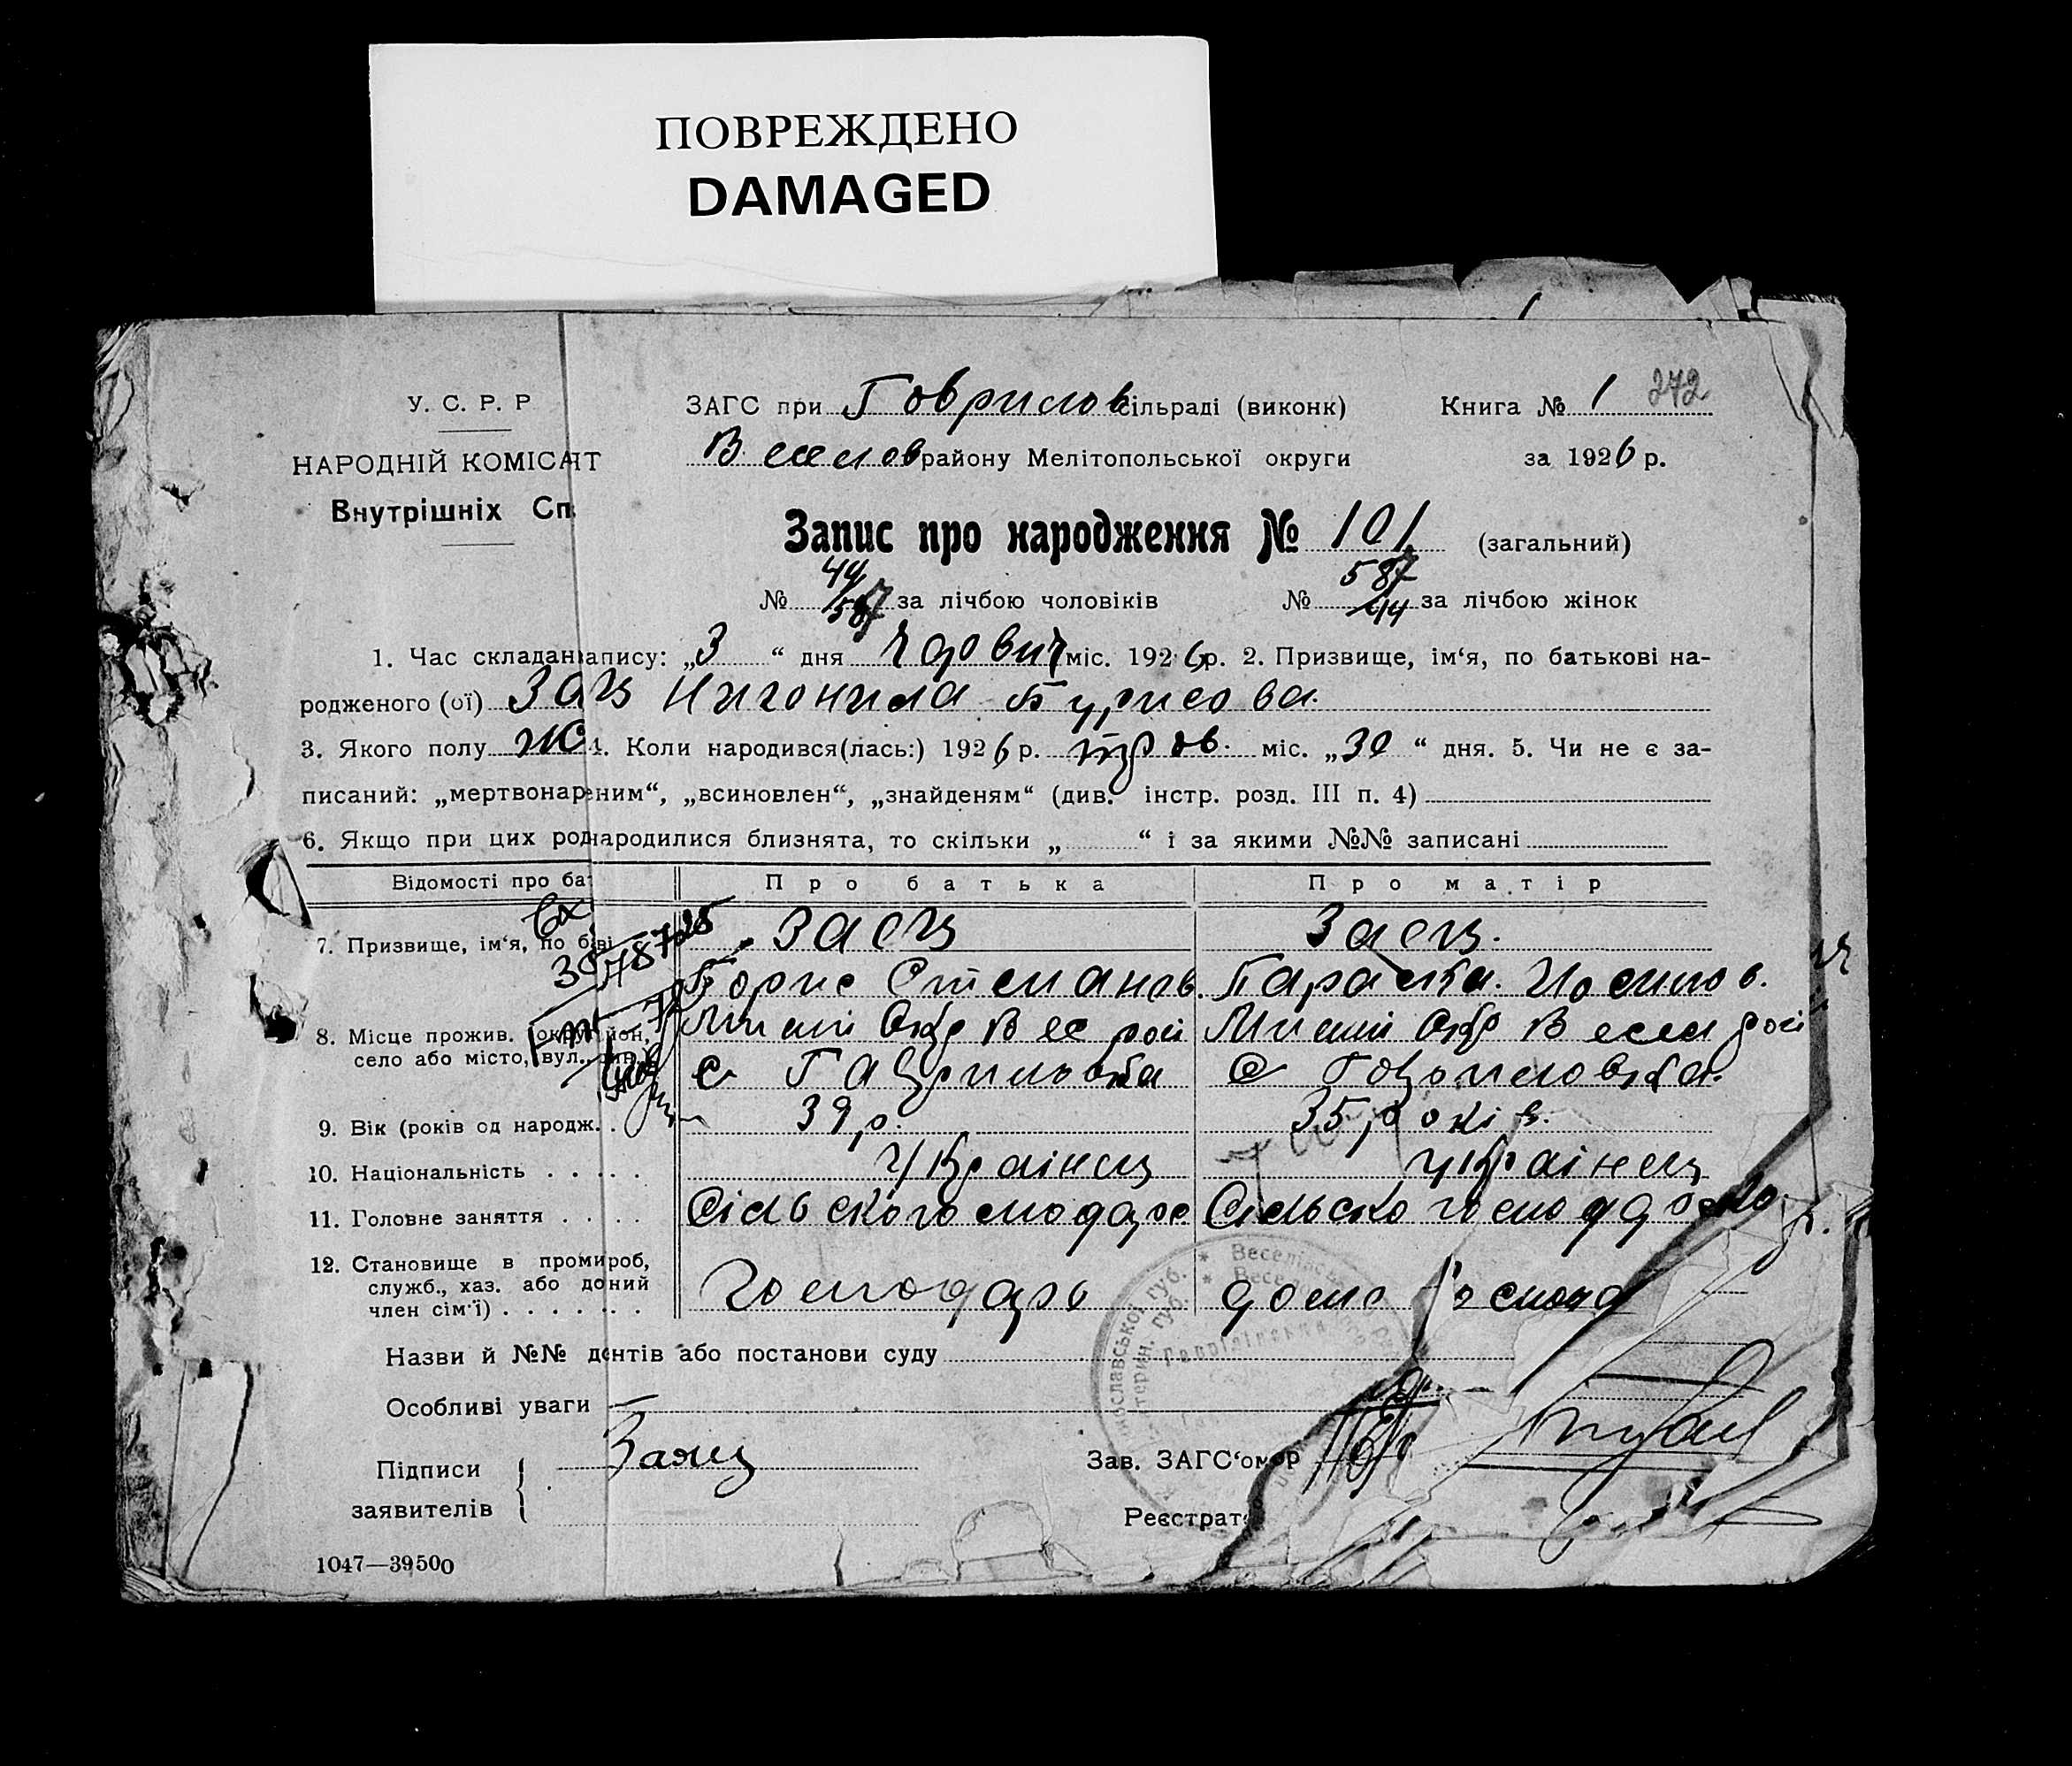 ПОВРЕЖДЕНО
DAMAGED
У. С. Р. Р
ЗАГС при Говрилов сільраді (виконк) Книга № 1 272
НАРОДНІЙ КОМІС Т
Веселов району Мелітопольської округи за 1926 р.
Внутрішніх Сп
Запис про народження № 101 (загальний)
44 587
№ 587 за лічбою чоловіків № 44 за лічбою жінок
1. Час складан апису: „3 “ дня міс. 1926 р. 2. Призвище, ім‘я, по батькові на-
родженого (ої) Заєц Нигонила Бурисова.
3. Якого полу жо 4. Коли народився(лась:) 1926 р. трав. міс. „30 “ дня. 5. Чи не є за-
писаний: „мертвонар ним“, „всиновлен“, „знайденям“ (див. інстр. розд. III п. 4)
6. Якщо при цих род народилися близнята, то скільки „ “ і за якими №№ записані
Відомості про ба Про батька Про матір
7. Призвище, ім‘я, по б ві Заєц Заєц.
Борис Степанов. Параска. Иосипов.
8. Місце прожив. окру йон, Окр Вес рой Окр Весел рої
село або місто, вул., с Гавриловка с Говриловка.
9. Вік (років од народж. 39 р. 35 років.
10. Національність Украінец украінец
11. Головне заняття Сільскогосподарс Сільсько господарско
12. Становище в промироб,
служб., хаз. або до ний
член сім‘ї) Господарь дома Господ
Назви й №№ д нтів або постанови суду
Особливі уваги
Підписи Заяц Зав. ЗАГС‘ом
заявителів Реєстрат
1047—39500